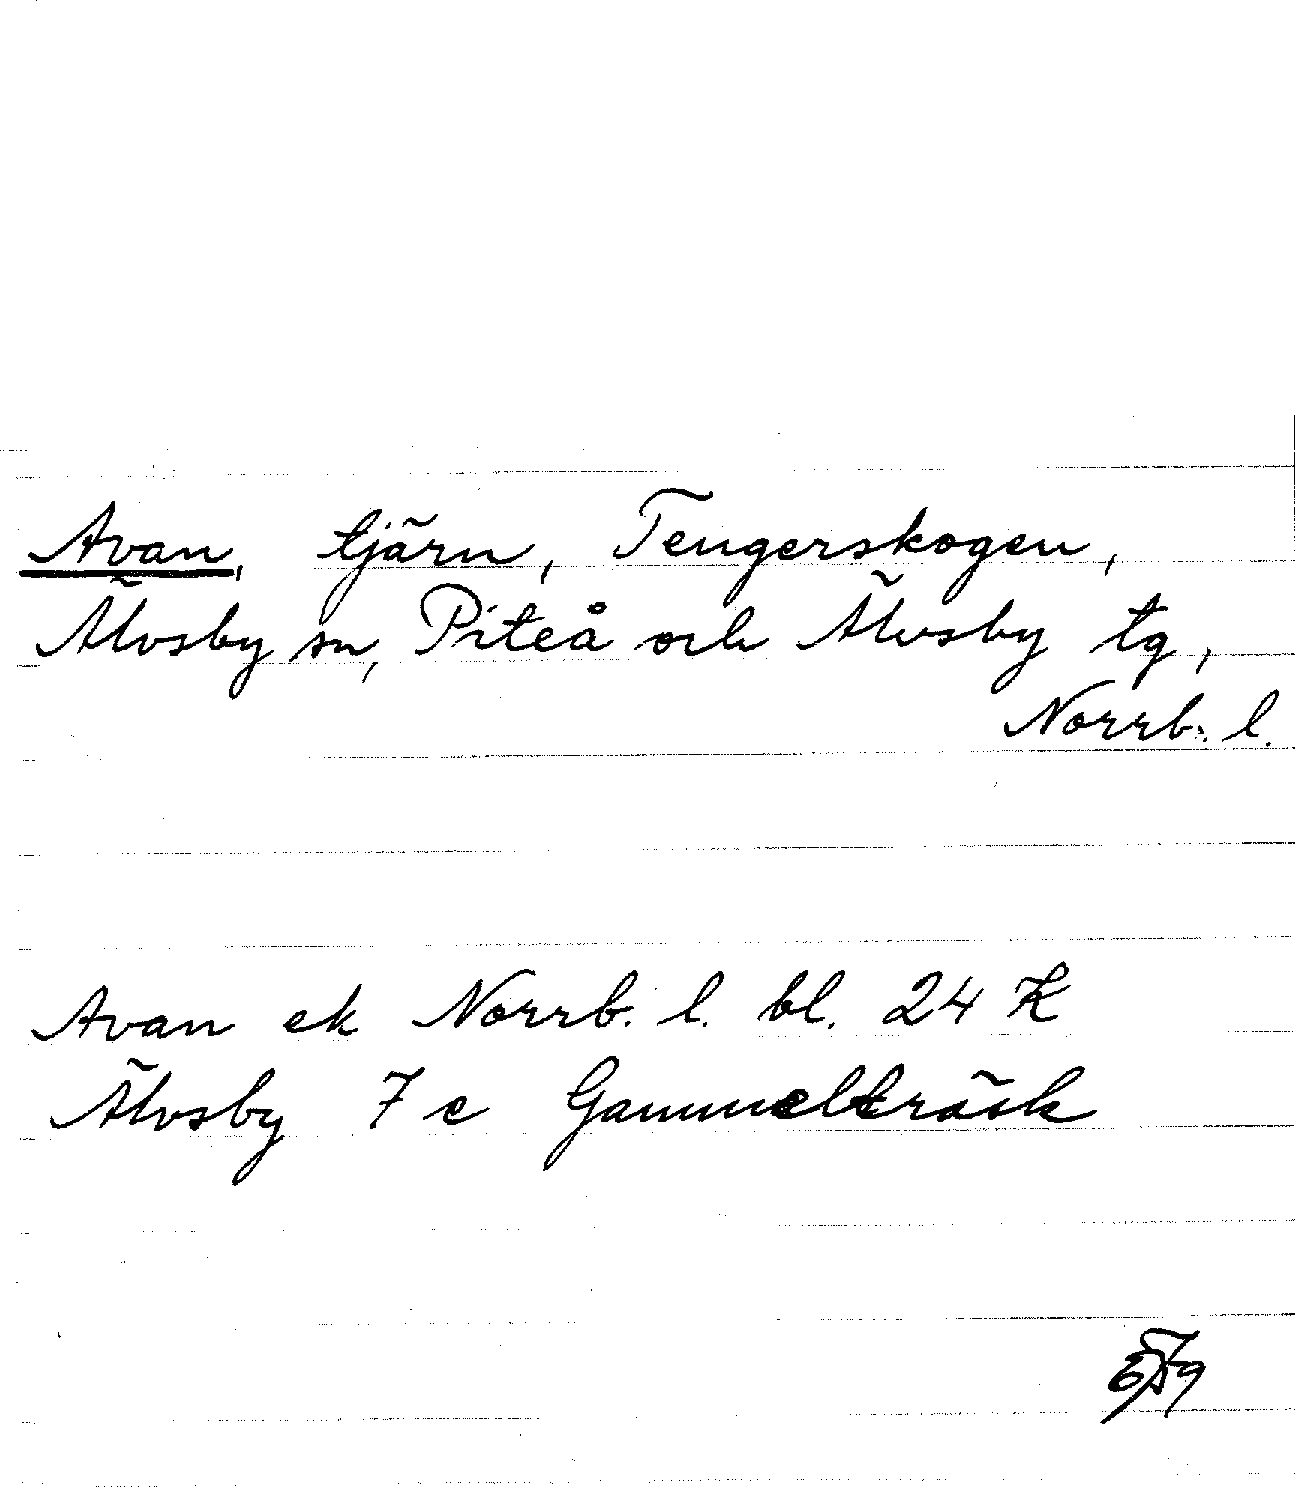 Avan, tjärn, Tengerskogen,
Älvsby sn, Piteå och Älvsby tg,
Norrb. l.
Avan ek Norrb. l. bl. 24 K
Älvsby 7 c Gammelträsk